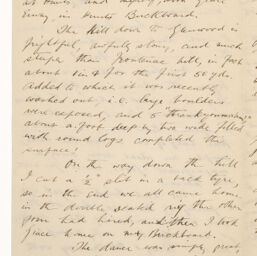 at Hunts, and
in Hunts Buckboard.
The Hill down to Glenwood is
frightful, awfully stony, and much
steeper than Frontenac hill, in fact
about 1 in 2 for the first 50 yds.
Added to which it was recently
washed out, i.e. large boulders
were exposed, and a
about a foot deep by two wide filled
with round logs completed the
surface!
On the way down the hill
I cut a 2" slit in a back tyre,
so in the end we all came home
in the double seated rig the other
four had hired, and then I took
Grace home on my Buckboard.
The dance was simply great,